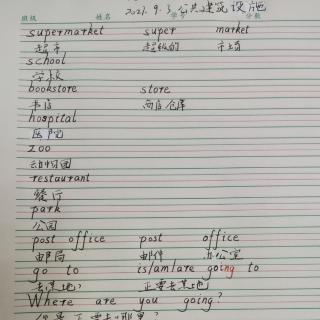 2021.9.5 公共建筑设施
班级 姓名 学号 分数
supermarket super market
超市 超级的 市场
school
学校
bookstore store
书店 商店仓库
hospital
医院
zoo
动物园
restaurant
餐厅
park
公园
post office post office
邮局 邮件 办公室
go to is/am/are going to
去某地 正要去某地
Where are you going?